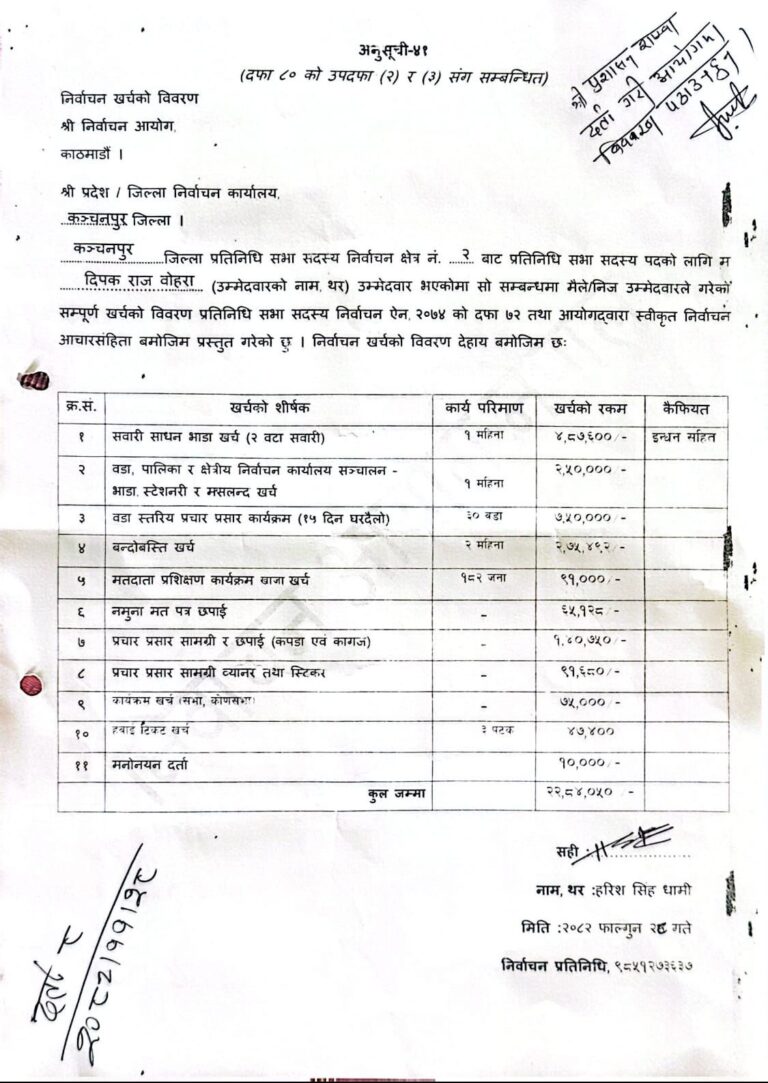 अनुसूची-४१
(दफा ८० को उपदफा (२) र (३) संग सम्बन्धित)
श्री प्रशासन शाखा
दर्ता गरी आयोगमा
विवरण पठाउनुहुन ।
निर्वाचन खर्चको विवरण
श्री निर्वाचन आयोग,
काठमाडौं ।
श्री प्रदेश / जिल्ला निर्वाचन कार्यालय,
कञ्चनपुर जिल्ला ।
कञ्चनपुर जिल्ला प्रतिनिधि सभा सदस्य निर्वाचन क्षेत्र नं. २ बाट प्रतिनिधि सभा सदस्य पदको लागि म
दिपक राज वोहरा (उम्मेदवारको नाम, थर) उम्मेदवार भएकोमा सो सम्बन्धमा मैले/निज उम्मेदवारले गरेको
सम्पूर्ण खर्चको विवरण प्रतिनिधि सभा सदस्य निर्वाचन ऐन, २०७४ को दफा ७२ तथा आयोगद्वारा स्वीकृत निर्वाचन
आचारसंहिता बमोजिम प्रस्तुत गरेको छु । निर्वाचन खर्चको विवरण देहाय बमोजिम छः
क्र.सं. खर्चको शीर्षक कार्य परिमाण खर्चको रकम कैफियत
१ सवारी साधन भाडा खर्च (२ वटा सवारी) १ महिना ४,८७,६००/- इन्धन सहित
२ वडा, पालिका र क्षेत्रीय निर्वाचन कार्यालय सञ्चालन - २,५०,०००/-
भाडा, स्टेशनरी र मसलन्द खर्च १ महिना
३ वडा स्तरिय प्रचार प्रसार कार्यक्रम (१५ दिन घरदैलो) ३० वडा ७,५०,०००/-
४ बन्दोबस्ति खर्च २ महिना २,७५,४९२/-
५ मतदाता प्रशिक्षण कार्यक्रम खाजा खर्च १८२ जना ९१,०००/-
६ नमुना मत पत्र छपाई - ६५,१२८/-
७ प्रचार प्रसार सामग्री र छपाई (कपडा एवं कागज) - १,४०,७५०/-
८ प्रचार प्रसार सामग्री ब्यानर तथा स्टिकर - ९१,६८०/-
९ कार्यक्रम खर्च (सभा, कोणसभा) - ७५,०००/-
१० हवाई टिकट खर्च ३ पटक ४७,४००
११ मनोनयन दर्ता १०,०००/-
कुल जम्मा २२,८४,०५० /-
सही :
नाम, थर :हरिश सिंह धामी
मिति :२०८२ फाल्गुन २८ गते
निर्वाचन प्रतिनिधि, ९८५१२७३६३७
दर्ता र
२०८२।११।२८